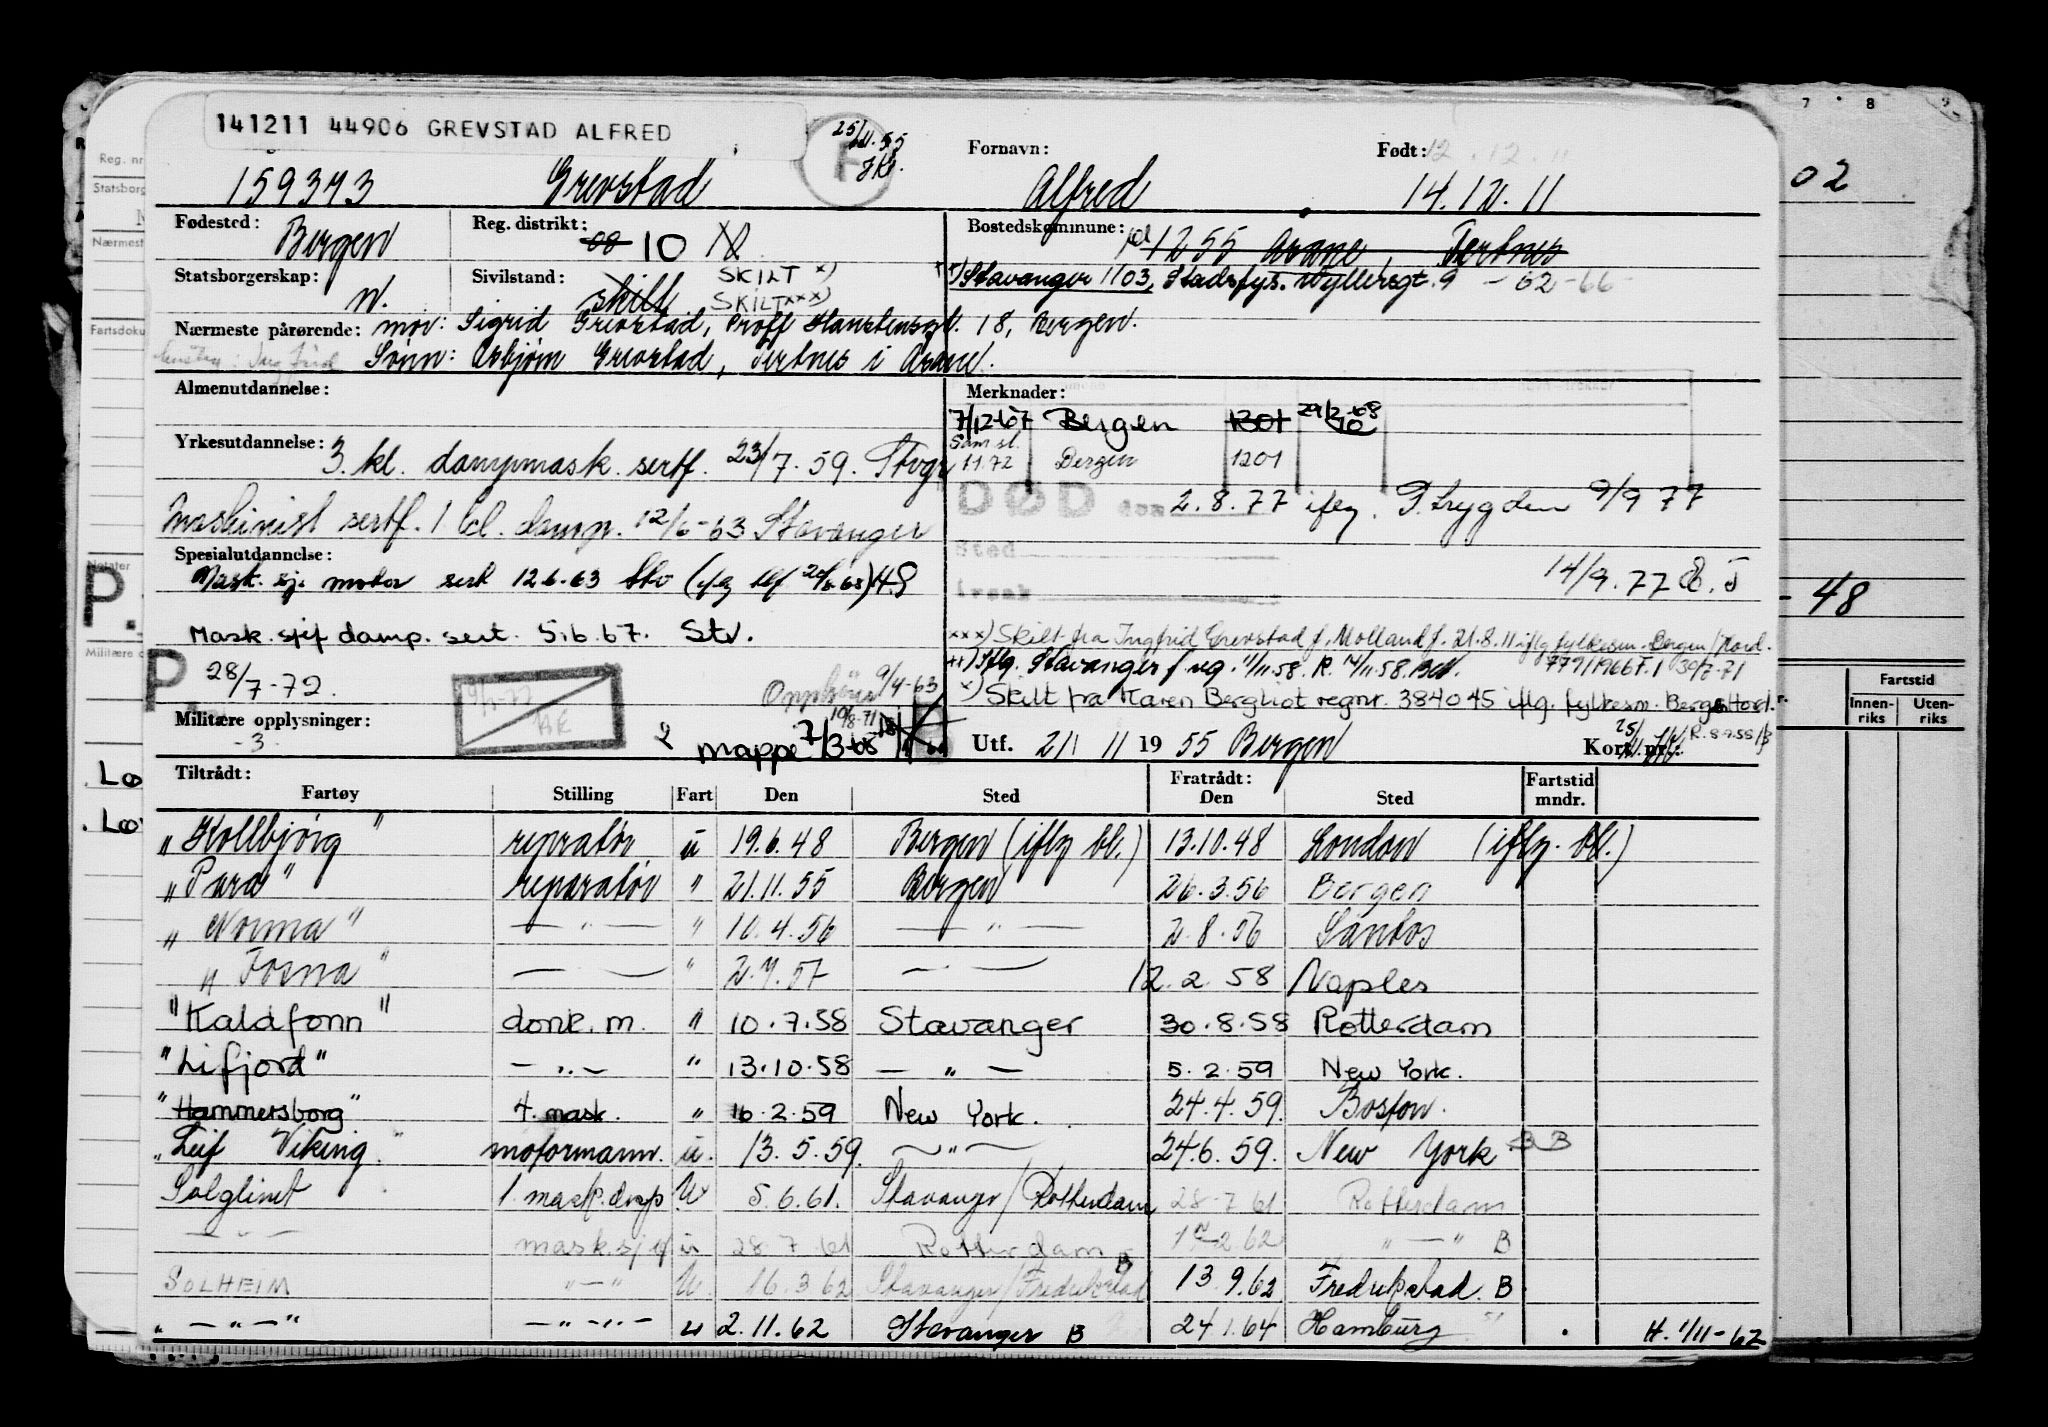 141211 44906 GREVSTAD ALFRED
25/11.55
Fornavn: Født: 12.12.11
159373 Grevstad F Alfred 14.12.11
Fødested: Bergen Reg. distrikt: 08 10 Bostedskommune: 1255 Asane, Tertnes
Statsborgerskap: n. Sivilstand: skilt SKILT x) SKILT xxx) Stavanger 1103, Stadsfys. Wyllersgt. 9 - 02-66-
Nærmeste pårørende: mor: Sigrid Grevstad, Proff Hanstensgt. 18, Bergen.
Sønn: Asbjørn Grevstad, Tertnes i Asane.
Almenutdannelse: Merknader:
7/12-67 Bergen 1301 29/2-68 10
Yrkesutdannelse: 3. kl. dampmask. sertf. 23/7.59. Stvgr
11.72 Bergen 1201
DØD den 2.8.77 iflg. P.trygden 9/9 77
Maskinist sertf. 1 kl. damp. 12/6-63 Stavanger
Sted
Spesialutdannelse:
Mask. sj. motor sert 12.6.63 Stv
14/9.77 E.J
Årsak
Mask.sjef damp. sert. 5.6.67. Stv.
xxx) Skilt fra Ingfrid Grevstad f. Molland f. 21.8.11 iflg fylkesm. Bergen/Hord.
779/1966 F.1 30/7-71
xx) Iflg. Stavanger s/reg. 11/11.58. R. 14/11.58.
P 28/7-72.
Opphører 9/4-63
x) Skilt fra Karen Bergliot regnr. 384045 iflg. fylkesm. Berg/Hord.
Militære opplysninger:
-3-
mappe 7/3-68 10/8-71
Utf. 21/11 1955 Bergen Kort nr.:
R. 8.9.58
Tiltrådt: Fartøy Stilling Fart Den Sted Fratrådt: Den Sted Fartstid mndr.
"Kollbjørg" repratør u 19.6.48 Bergen (iflg bl.) 13.10.48 London (iflg. bl.)
"Para" reparatør " 21.11.55 Bergen 26.3.56 Bergen
"Norma" — " — " 10.4.56 — " — 2.8.56 Santos
"Fosna" — " — " 2.7.57 — " — 12.2.58 Naples
"Kaldfonn" donk.m. " 10.7.58 Stavanger 30.8.58 Rotterdam
"Lifjord" — " — " 13.10.58 — " — 5.2.59 New York.
"Hammersborg" 4. mask. " 16.2.59 New York. 24.4.59. Boston.
"Leif Viking" motormann. u. 13.5.59. — " — 24.6.59. New York B B
Solglimt 1. mask. U 5.6.61. Stavanger/Rotterdam 28.7.61 Rotterdam
— " — mask.sjef u 28.7.61 Rotterdam B 2.62 " — " B
SOLHEIM " — " U. 16.3.62 Stavanger/Fredrikstad 13.9.62 Fredrikstad. B
" — " — " — " — " — u 2.11.62 Stavanger B 24.1.64 Hamburg H. 1/11-62
Reg. nr
Statsborg
Nærmest
Fartsdoku
Notater
P.
Militære o
Lo
Lo
7 8
02
- 48
Fartstid
Innen-riks Uten-riks